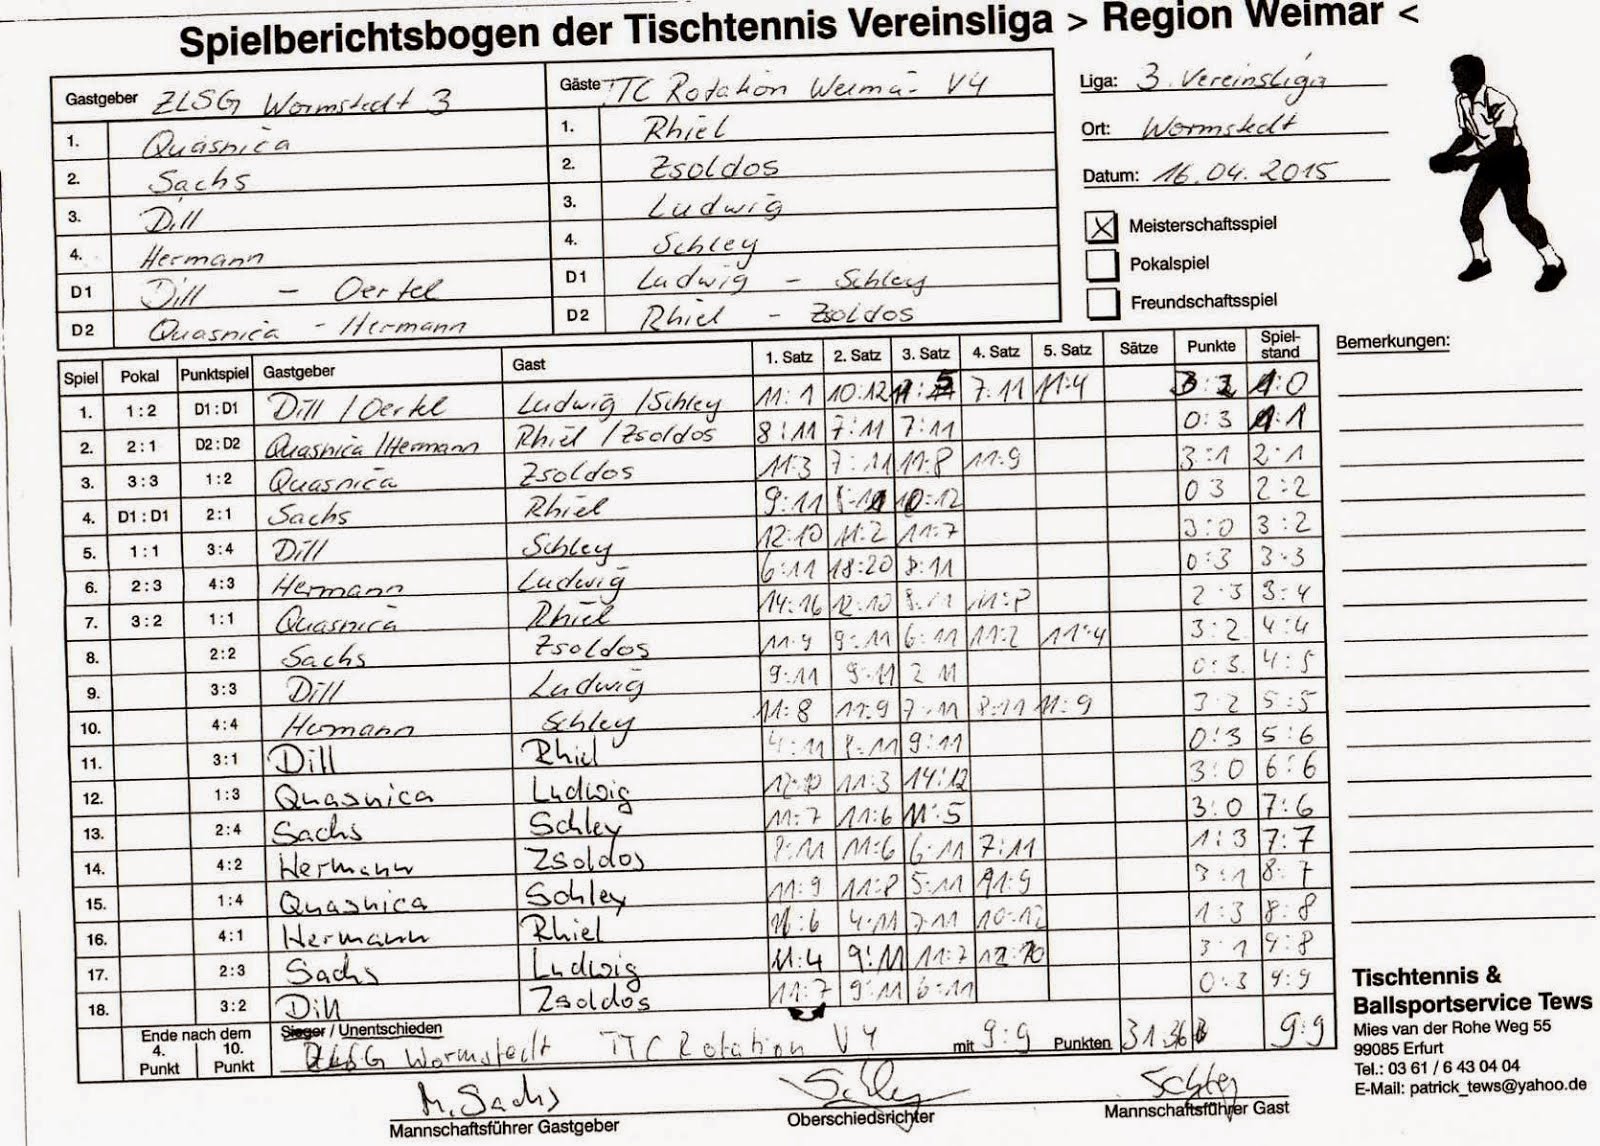 Spielberichtsbogen der Tischtennis Vereinsliga > Region Weimar <
Gastgeber ZLSG Wormstedt 3 Gäste TTC Rotation Weima- V4
1. Quasnica 1. Rhiel
2. Sachs 2. Zsoldos
3. Dill 3. Ludwig
4. Hermann 4. Schley
D1 Dill - Oertel D1 Ludwig - Schley
D2 Quasnica - Hermann D2 Rhiel - Zsoldos
Liga: 3. Vereinsliga
Ort: Wormstedt
Datum: 16.04.2015
X Meisterschaftsspiel
Pokalspiel
Freundschaftsspiel
Spiel Pokal Punktspiel Gastgeber Gast 1. Satz 2. Satz 3. Satz 4. Satz 5. Satz Sätze Punkte Spiel-stand Bemerkungen:
1. 1:2 D1:D1 Dill/Oertel Ludwig/Schley 11:1 10:12 11:5 7:11 11:4 3:2 1:0
2. 2:1 D2:D2 Quasnica/Hermann Rhiel/Zsoldos 8:11 7:11 7:11 0:3 1:1
3. 3:3 1:2 Quasnica Zsoldos 11:3 7:11 11:8 11:9 3:1 2:1
4. D1:D1 2:1 Sachs Rhiel 9:11 10:12 0 3 2:2
5. 1:1 3:4 Dill Schley 12:10 11:2 11:7 3:0 3:2
6. 2:3 4:3 Hermann Ludwig 6:11 18:20 8:11 0:3 3:3
7. 3:2 1:1 Quasnica Rhiel 14:16 12:10 8:11 11:8 2:3 3:4
8. 2:2 Sachs Zsoldos 11:9 9:11 6:11 11:2 11:4 3:2 4:4
9. 3:3 Dill Ludwig 9:11 9:11 2 11 0:3 4:5
10. 4:4 Hermann Schley 11:8 11:9 7:11 8:11 11:9 3:2 5:5
11. 3:1 Dill Rhiel 4:11 8:11 9:11 0:3 5:6
12. 1:3 Quasnica Ludwig 12:10 11:3 14:12 3:0 6:6
13. 2:4 Sachs Schley 11:7 11:6 11:5 3:0 7:6
14. 4:2 Hermann Zsoldos 8:11 11:6 6:11 7:11 1:3 7:7
15. 1:4 Quasnica Schley 11:9 11:8 5:11 11:9 3:1 8:7
16. 4:1 Hermann Rhiel 11:6 4:11 7:11 10:12 1:3 8:8
17. 2:3 Sachs Ludwig 11:4 9:11 11:7 12:10 3:1 9:8
18. 3:2 Dill Zsoldos 11:7 9:11 6:11 0:3 9:9
Ende nach dem
4. Punkt 10. Punkt
Sieger / Unentschieden
ZLSG Wormstedt TTC Rotation V4 mit 9:9 Punkten 31:36 9:9
M. Sachs Schley Schley
Mannschaftsführer Gastgeber Oberschiedsrichter Mannschaftsführer Gast
Tischtennis &
Ballsportservice Tews
Mies van der Rohe Weg 55
99085 Erfurt
Tel.: 03 61 / 6 43 04 04
E-Mail: patrick_tews@yahoo.de